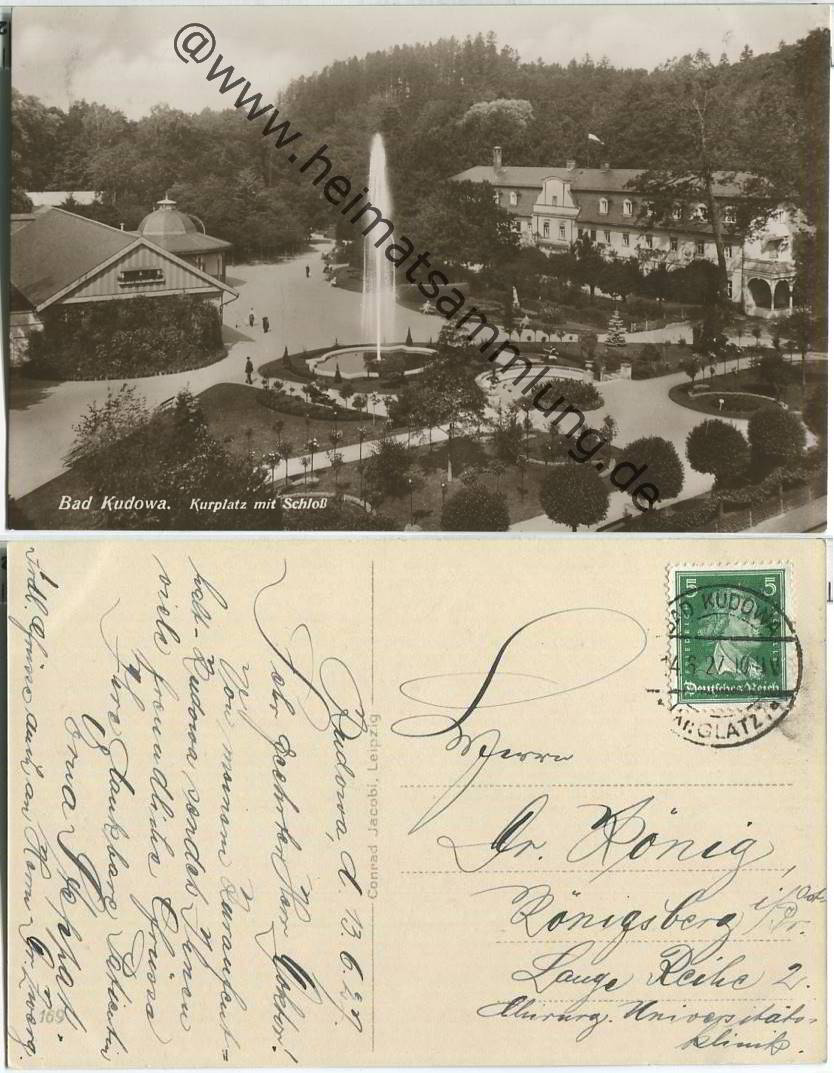 @www.heimatsammlung.de
Bad Kudowa. Kurplatz mit Schloß
Kudowa, d. 13.6.27.
Sehr geehrter Herr Doktor!
Von meinem Kuraufent-
halt-Kudowa, sendet Ihnen
viele freundliche Grüsse
Ihre dankbare Patientin
Erna
Frdl. Grüsse auch an Herrn Dr.
169
Conrad Jacobi, Leipzig
5 5
Deutsches Reich
BAD KUDOWA
GLATZ
Herrn
Dr. König,
Königsberg i/Pr.
Lange Reihe 2.
Chirurg. Universitäts-
klinik.